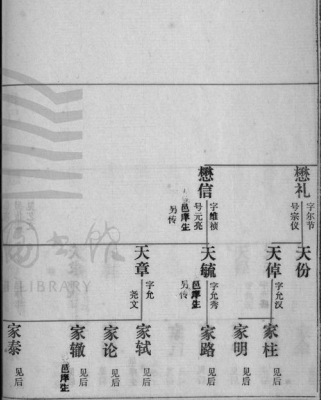 懋礼
字尔节
号宗仪
懋信
字维桢
号元亮
邑庠生
另传
天份
天倬
字允汉
天毓
字允秀
邑庠生
另传
天章
字允
尧文
家柱
见后
家明
见后
家路
见后
家轼
见后
家论
见后
家辙
见后
邑庠生
家泰
见后
LIBRARY